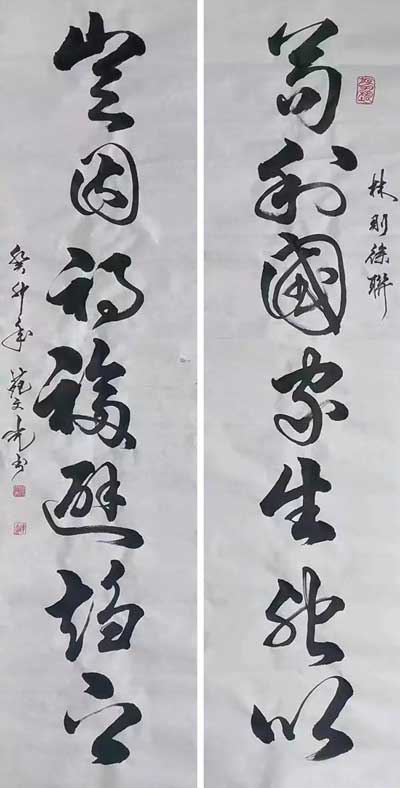 林則徐聯
苟利國家生死以
豈因禍福避趨之
癸卯年 范文 书